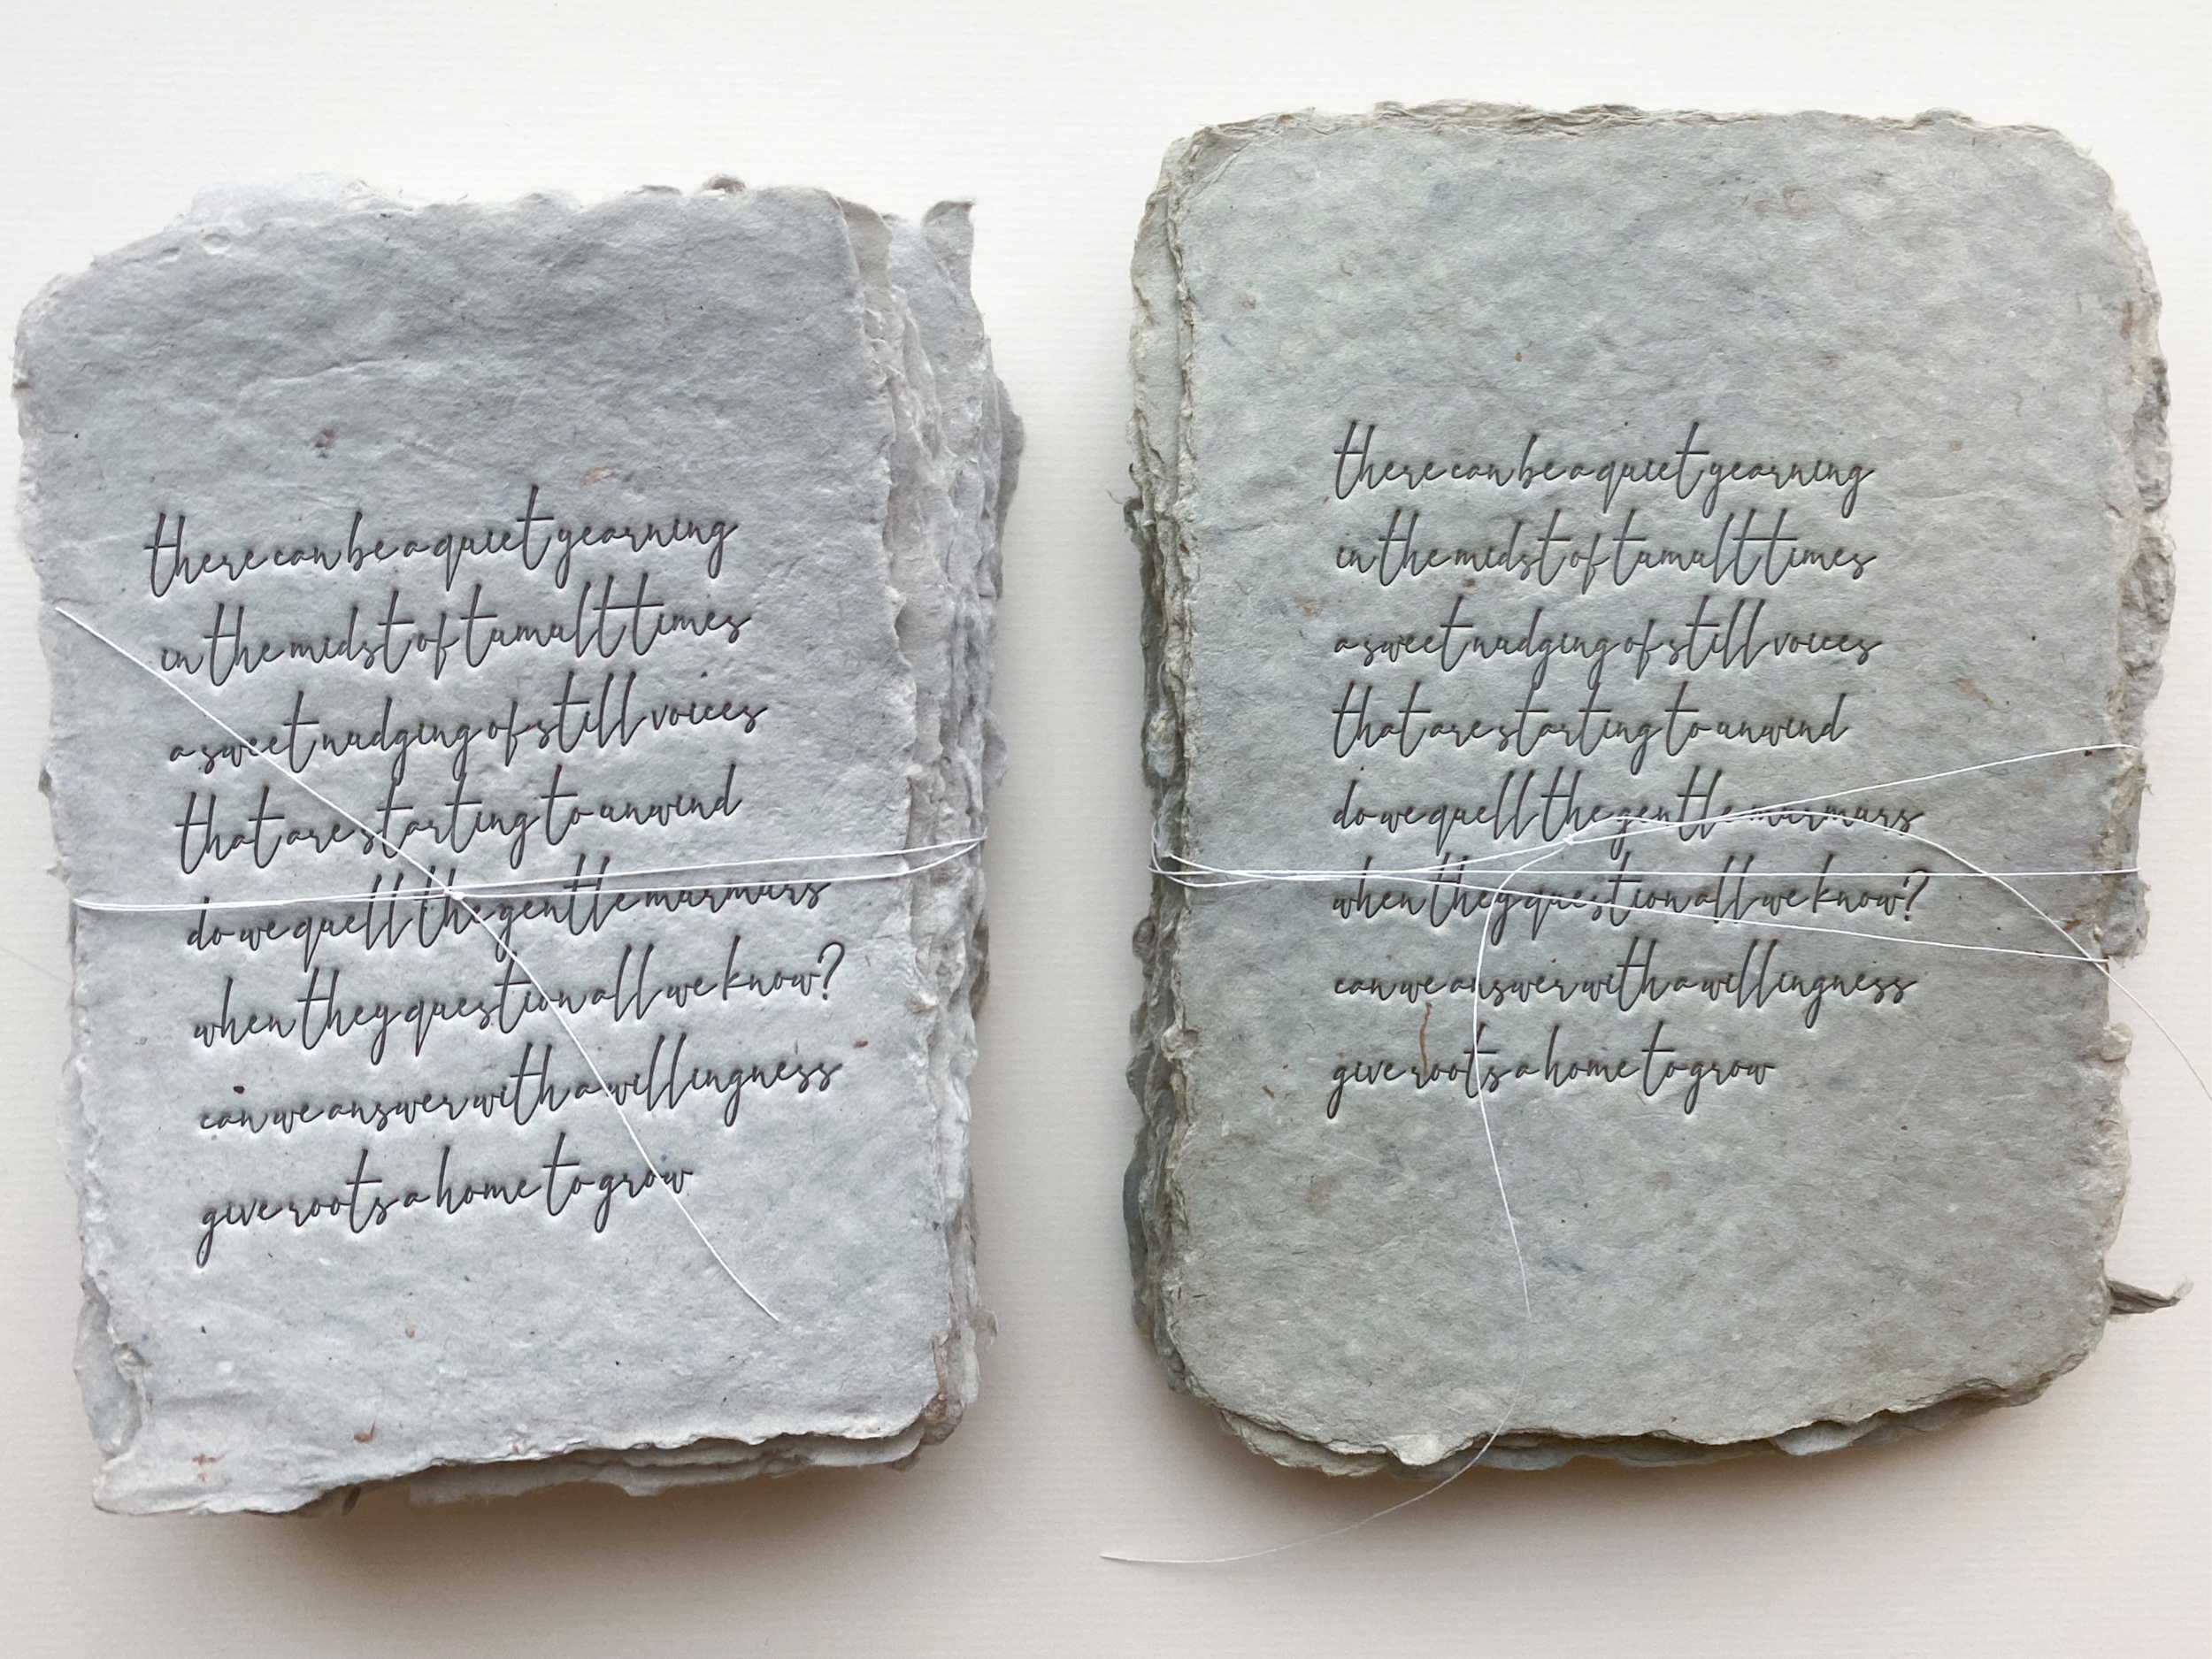 there can be a quiet yearning
in the midst of tumult times
a sweet nudging of still voices
that are starting to unwind
do we quell the gentle murmurs
when they question all we know?
can we answer with a willingness
give roots a home to grow
there can be a quiet yearning
in the midst of tumult times
a sweet nudging of still voices
that are starting to unwind
do we quell the gentle murmurs
when they question all we know?
can we answer with a willingness
give roots a home to grow